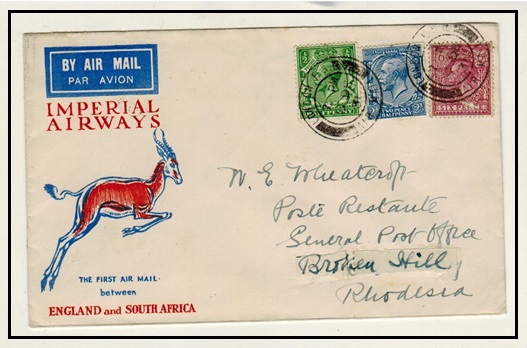 BY AIR MAIL
PAR AVION
IMPERIAL
AIRWAYS
THE FIRST AIR MAIL
between
ENGLAND and SOUTH AFRICA
W. E. Wheatcroft
Poste Restante
General Post Office
Broken Hill
Rhodesia
SIX PENCE